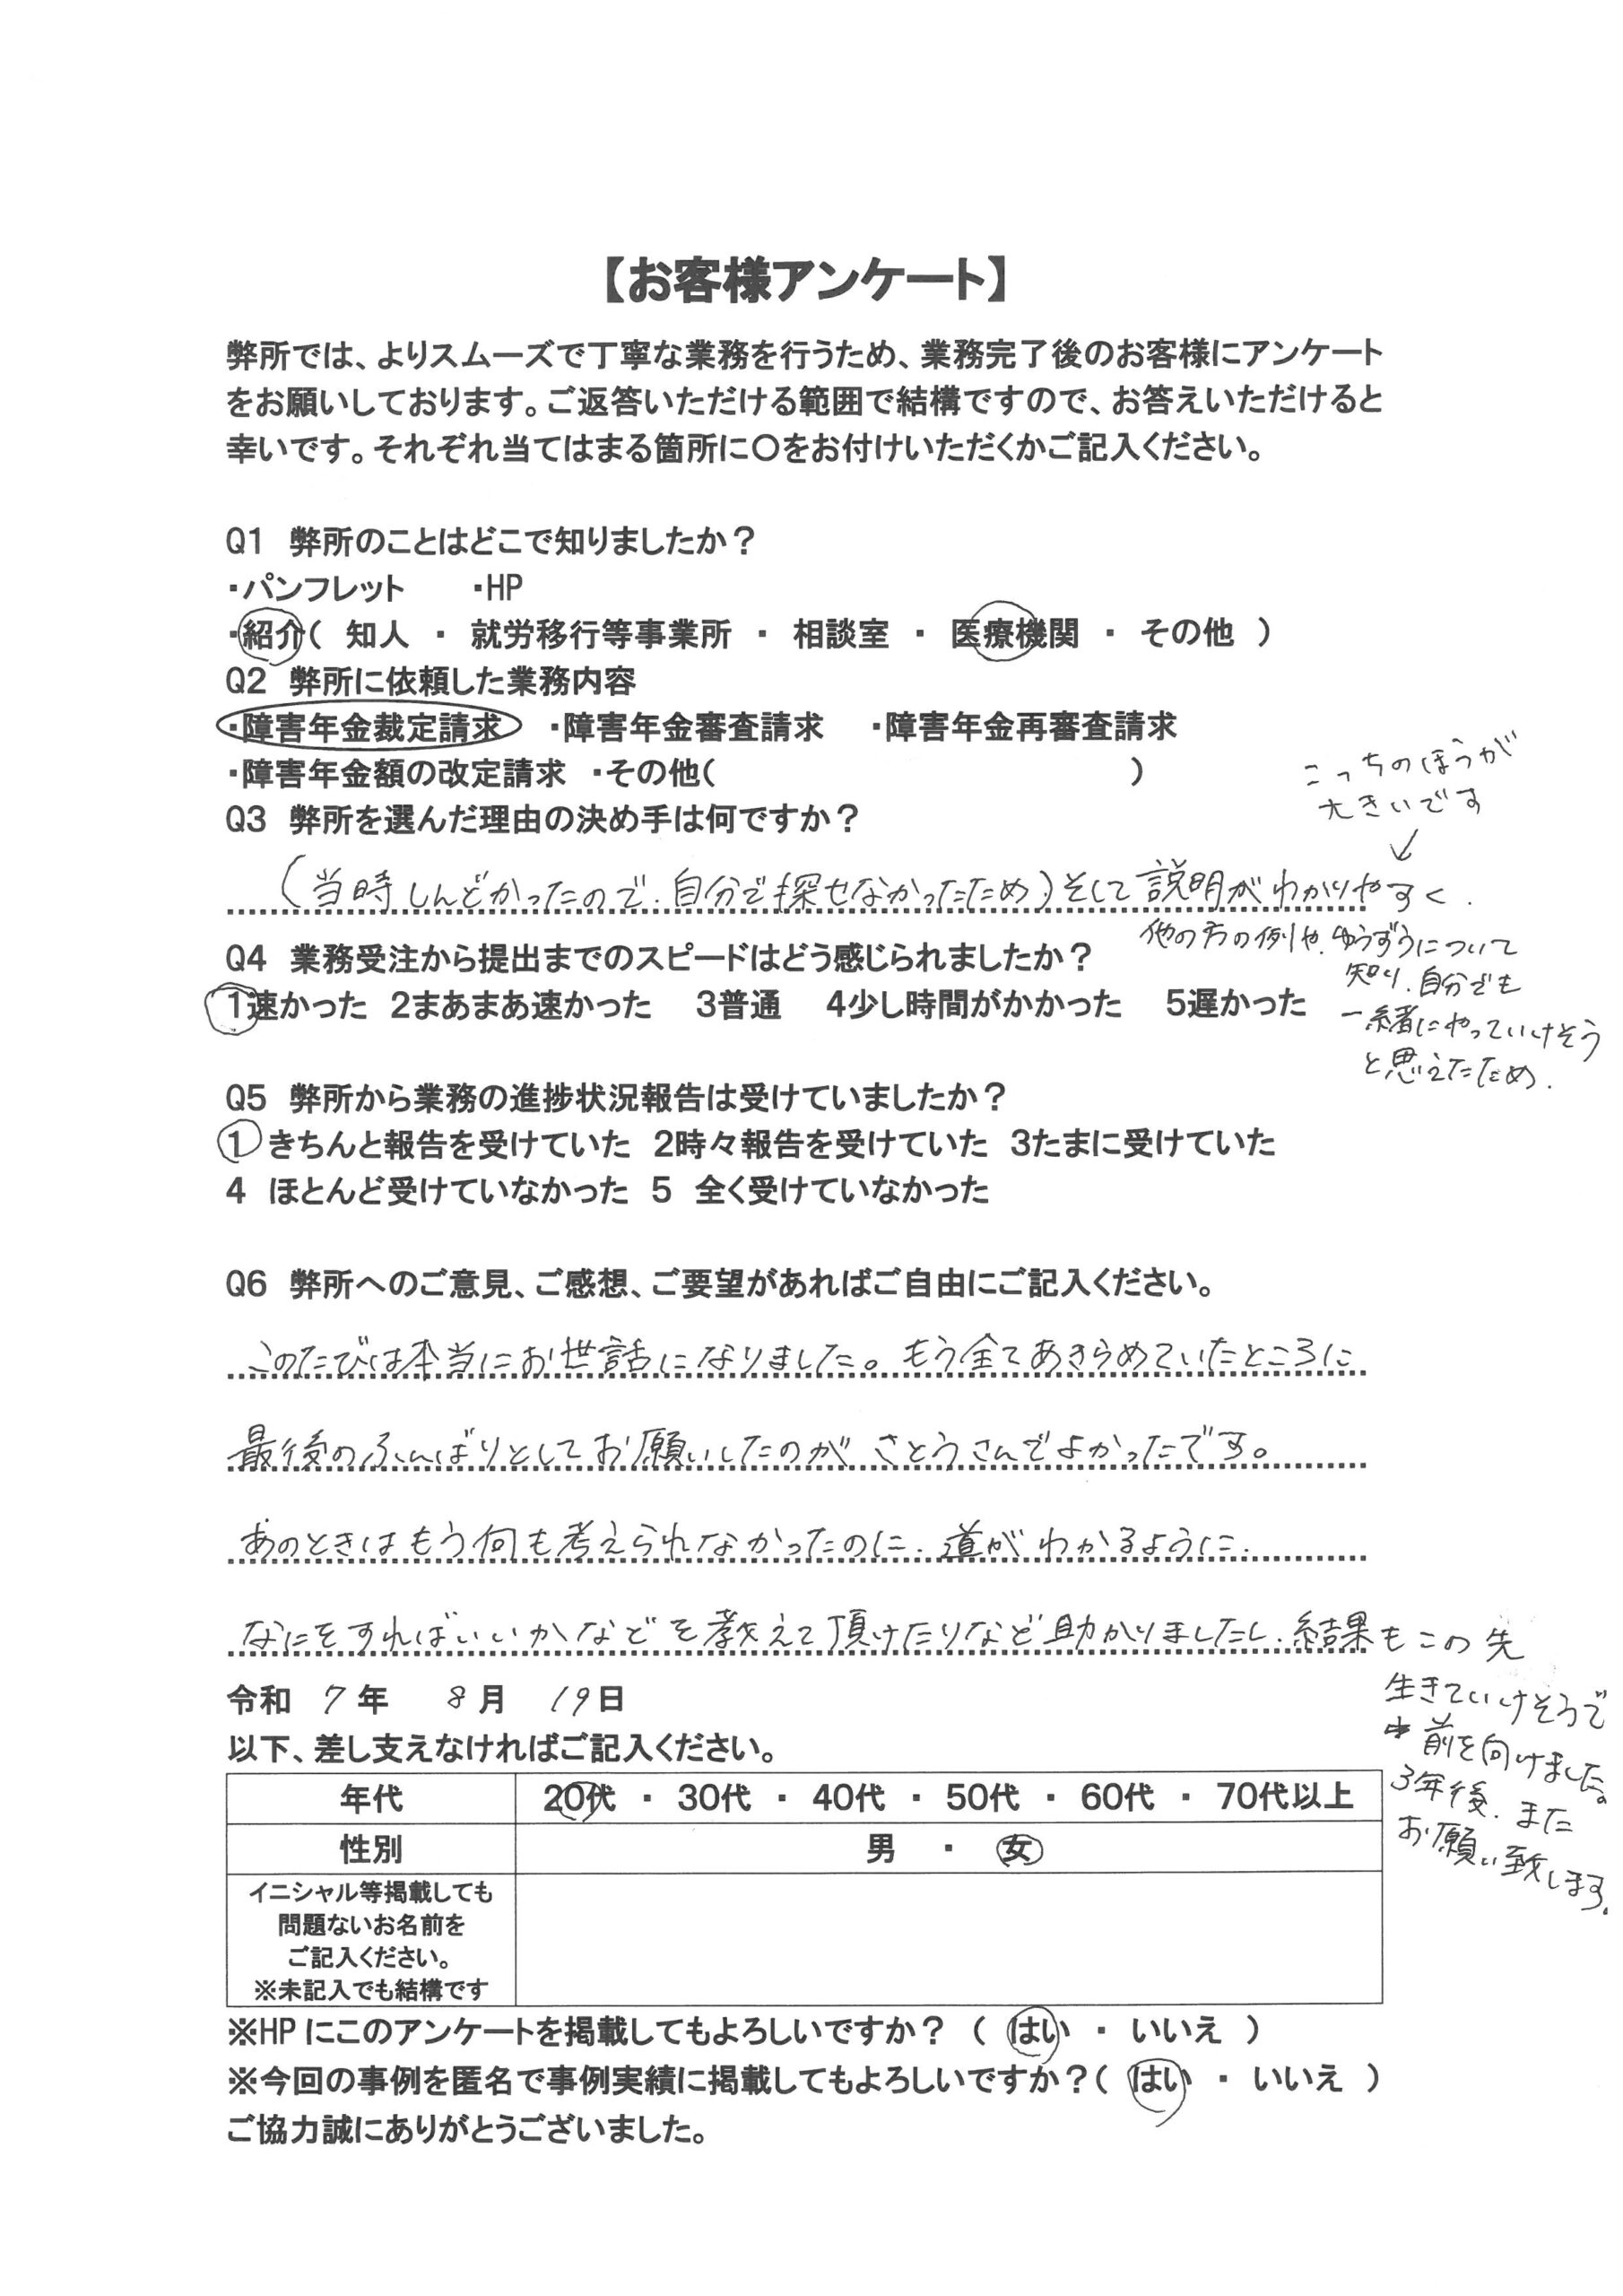 【お客様アンケート】
弊所では、よりスムーズで丁寧な業務を行うため、業務完了後のお客様にアンケート
をお願いしております。ご返答いただける範囲で結構ですので、お答えいただけると
幸いです。それぞれ当てはまる箇所に〇をお付けいただくかご記入ください。
Q1 弊所のことはどこで知りましたか？
・パンフレット ・HP
・紹介（ 知人 ・ 就労移行等事業所 ・ 相談室 ・ 医療機関 ・ その他 ）
Q2 弊所に依頼した業務内容
・障害年金裁定請求 ・障害年金審査請求 ・障害年金再審査請求
・障害年金額の改定請求 ・その他（ ）
Q3 弊所を選んだ理由の決め手は何ですか？
こっちのほうが
大きいです
↓
（当時しんどかったので、自分で探せなかったため）そして説明がわかりやすく、
他の方の例や、ゆうずうについて
知り、自分でも
一緒にやっていけそう
と思えたため．
Q4 業務受注から提出までのスピードはどう感じられましたか？
1速かった 2まあまあ速かった 3普通 4少し時間がかかった 5遅かった
Q5 弊所から業務の進捗状況報告は受けていましたか？
1 きちんと報告を受けていた 2時々報告を受けていた 3たまに受けていた
4 ほとんど受けていなかった 5 全く受けていなかった
Q6 弊所へのご意見、ご感想、ご要望があればご自由にご記入ください。
このたびは本当にお世話になりました。もう全てあきらめていたところに
最後のふんばりとしてお願いしたのが さとうさんでよかったです。
あのときはもう何も考えられなかったのに、道がわかるように、
なにをすればいいかなどを教えて頂けたりなど助かりましたし、結果もこの先
生きていけそうで
前を向けました。
3年後、また
お願い致します。
令和 7年 8月 19日
以下、差し支えなければご記入ください。
年代 20代 ・ 30代 ・ 40代 ・ 50代 ・ 60代 ・ 70代以上
性別 男 ・ 女
イニシャル等掲載しても
問題ないお名前を
ご記入ください。
※未記入でも結構です
※HPにこのアンケートを掲載してもよろしいですか？（ はい ・ いいえ ）
※今回の事例を匿名で事例実績に掲載してもよろしいですか？（ はい ・ いいえ ）
ご協力誠にありがとうございました。